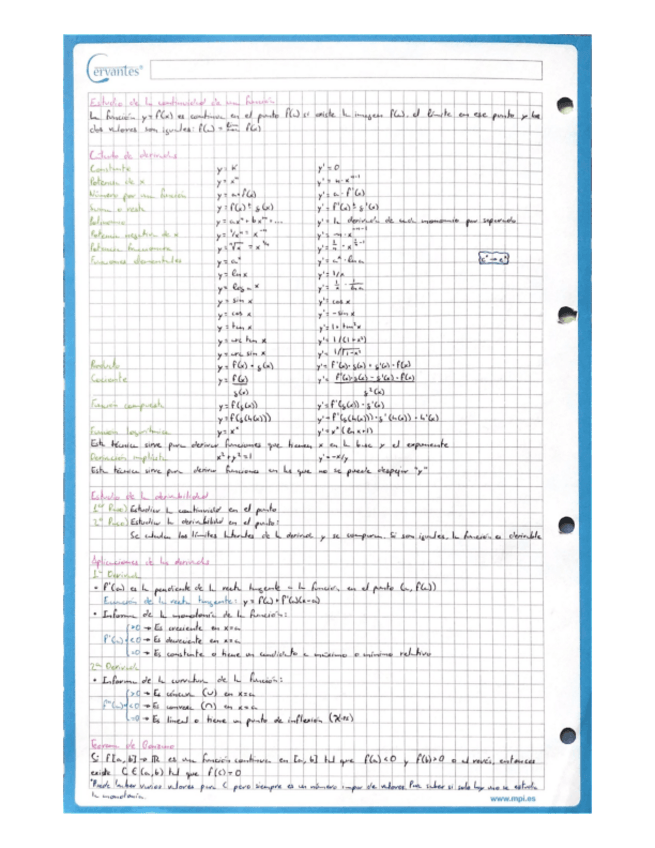 Cervantes
Estudio de la continuidad de una función
La función y=f(x) es continua en el punto f(a) si existe la imagen f(a), el límite en ese punto y los
dos valores son iguales: f(a) = lím f(x)
Cálculo de derivadas
Constante y = K y' = 0
Potencia de x y = xⁿ y' = n·xⁿ⁻¹
Número por una función y = a·f(x) y' = a·f'(x)
Suma o resta y = f(x) ± g(x) y' = f'(x) ± g'(x)
Polinomio y = axⁿ + bxᵐ + ... y' = la derivada de cada monomio por separado
Potencia negativa de x y = 1/xⁿ = x⁻ⁿ y' = -n·x⁻ⁿ⁻¹
Potencia fraccionaria
Funciones elementales y = aˣ y' = aˣ · ln a eˣ → eˣ
y = ln x y' = 1/x
y = logₐ x y' = 1/x · 1/ln a
y = sin x y' = cos x
y = cos x y' = -sin x
y = tan x y' = 1 + tan²x
y = arc tan x y' = 1/(1+x²)
y = arc sin x y' = 1/√1-x²
Producto y = f(x) · g(x) y' = f'(x)·g(x) + g'(x)·f(x)
Cociente y = f(x)/g(x) y' = f'(x)·g(x) - g'(x)·f(x)/g²(x)
Función compuesta y = f(g(x)) y' = f'(g(x))·g'(x)
y = f(g(h(x))) y' = f'(g(h(x)))·g'(h(x))·h'(x)
Función logarítmica y = xˣ y' = xˣ(ln x+1)
Esta técnica sirve para derivar funciones que tienen x en la base y el exponente
Derivación implícita x²+y²=1 y' = -x/y
Esta técnica sirve para derivar funciones en las que no se puede despejar "y"
Estudio de la derivabilidad
1er Paso) Estudiar la continuidad en el punto
2º Paso) Estudiar la derivabilidad en el punto:
Se calculan los límites laterales de la derivada y se comparan. Si son iguales, la función es derivable
Aplicaciones de las derivadas
1ª Derivada
• f'(a) es la pendiente de la recta tangente a la función en el punto (a, f(a))
Ecuación de la recta tangente: y = f(a) + f'(a)(x-a)
• Informa de la monotonía de la función:
>0 → Es creciente en x=a
f'(a) <0 → Es decreciente en x=a
=0 → Es constante o tiene un candidato a máximo o mínimo relativo
2ª Derivada
• Informa de la curvatura de la función:
>0 → Es cóncava (∪) en x=a
f''(a) <0 → Es convexa (∩) en x=a
=0 → Es lineal o tiene un punto de inflexión
Teorema de Bolzano
Si f[a,b] → ℝ es una función continua en [a,b] tal que f(a)<0 y f(b)>0 o al revés, entonces
existe C ∈ (a,b) tal que f(c)=0
*Puede haber varios valores para C pero siempre es un número impar de valores. Para saber si solo hay uno se estudia
la monotonía
www.mpi.es